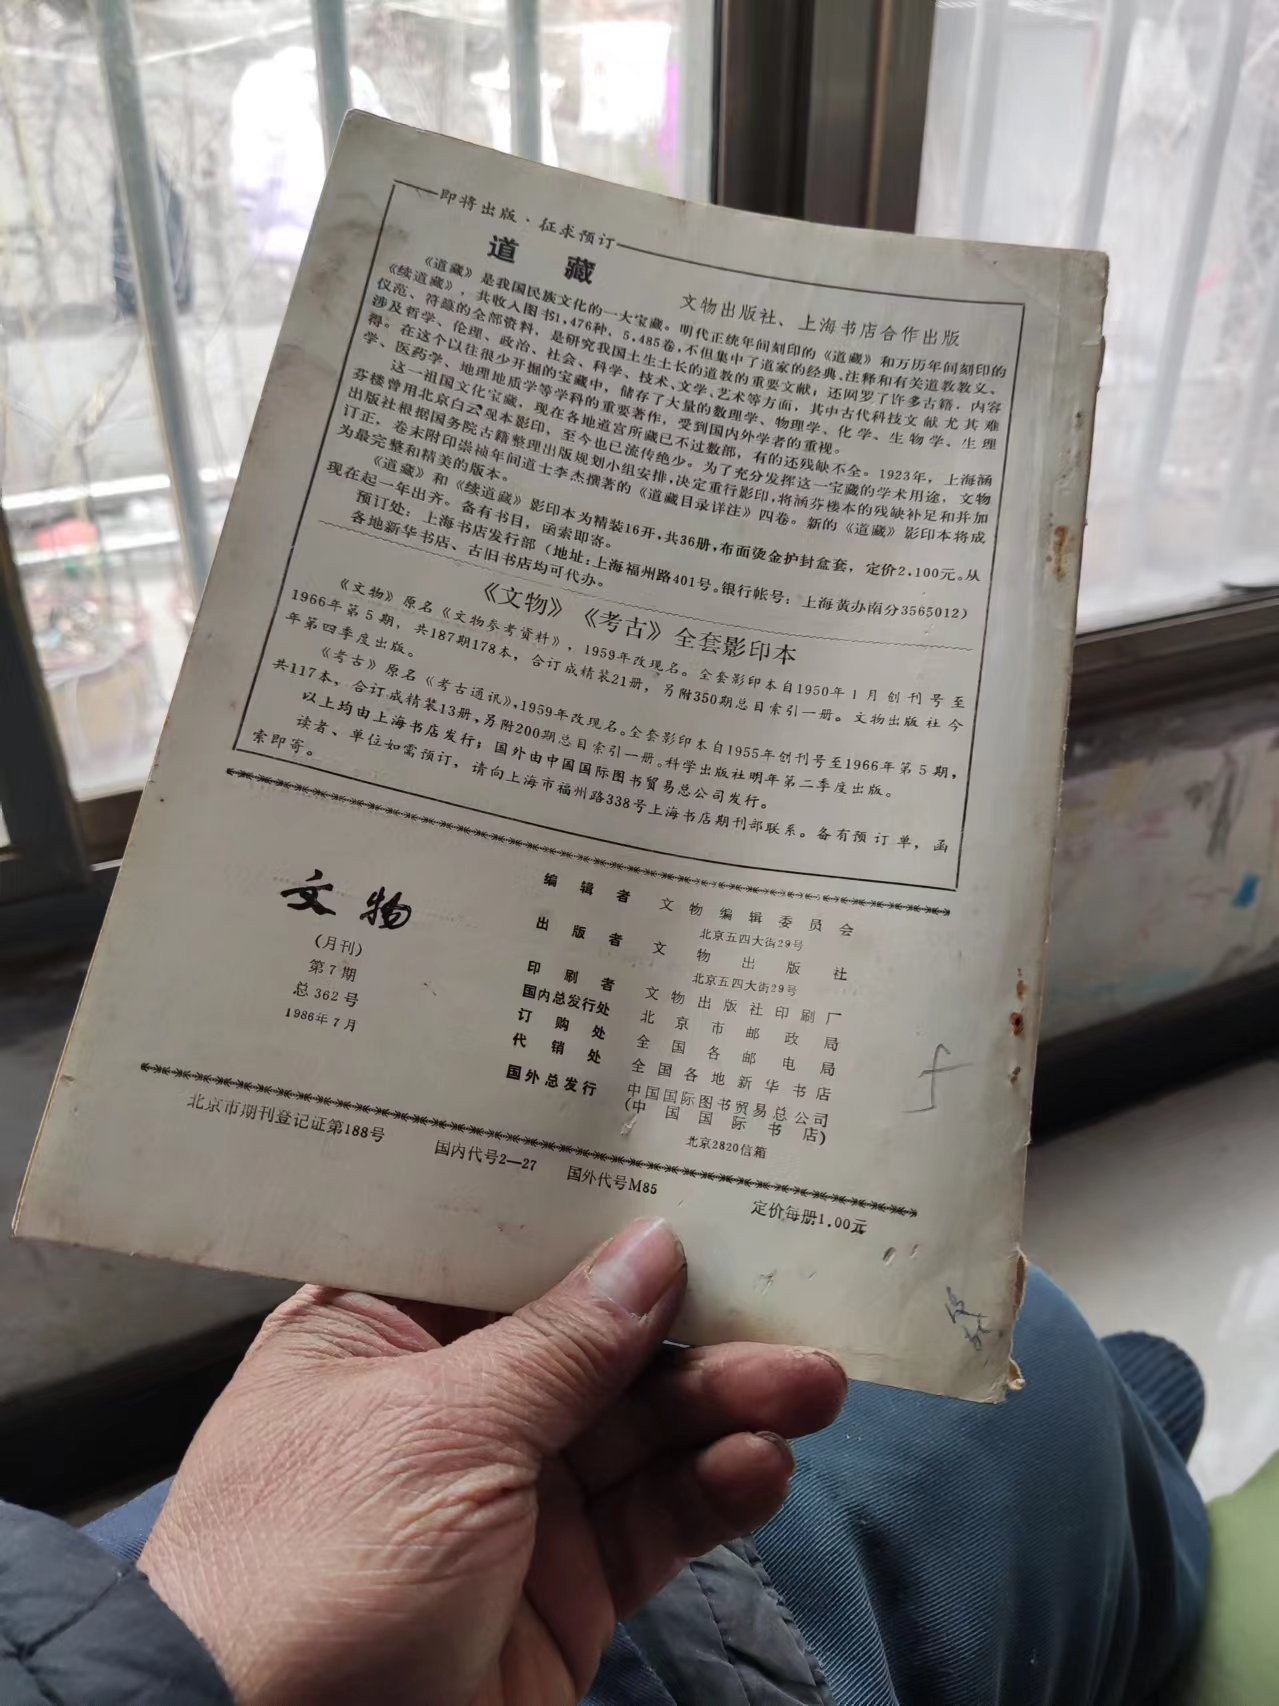 即将出版·征求预订
道藏
文物出版社、上海书店合作出版
《道藏》是我国民族文化的一大宝藏。明代正统年间刻印的《道藏》和万历年间刻印的
《续道藏》，共收入图书1,476种，5,485卷，不但集中了道家的经典、注释和有关道教教义、
仪范、符箓的全部资料，是研究我国土生土长的道教的重要文献；还网罗了许多古籍，内容
涉及哲学、伦理、政治、社会、科学、技术、文学、艺术等方面，其中古代科技文献尤其难
得。在这个以往很少开掘的宝藏中，储存了大量的数理学、物理学、化学、生物学、生理
学、医药学、地理地质学等学科的重要著作，受到国内外学者的重视。
这一祖国文化宝藏，现在各地道宫所藏已不过数部，有的还残缺不全。1923年，上海涵
芬楼曾用北京白云观本影印，至今也已流传绝少。为了充分发挥这一宝藏的学术用途，文物
出版社根据国务院古籍整理出版规划小组安排，决定重行影印，将涵芬楼本的残缺补足和并加
订正，卷末附印崇祯年间道士李杰撰著的《道藏目录详注》四卷。新的《道藏》影印本将成
为最完整和精美的版本。
《道藏》和《续道藏》影印本为精装16开，共36册，布面烫金护封盒套，定价2.100元。从
现在起一年出齐。备有书目，函索即寄。
预订处：上海书店发行部（地址：上海福州路401号。银行帐号：上海黄办南分3565012）
各地新华书店、古旧书店均可代办。
《文物》《考古》全套影印本
《文物》原名《文物参考资料》，1959年改现名。全套影印本自1950年1月创刊号至
1966年第5期，共187期178本，合订成精装21册，另附350期总目索引一册。文物出版社今
年第四季度出版。
《考古》原名《考古通讯》，1959年改现名。全套影印本自1955年创刊号至1966年第5期，
共117本，合订成精装13册，另附200期总目索引一册。科学出版社明年第二季度出版。
以上均由上海书店发行；国外由中国国际图书贸易总公司发行。
读者、单位如需预订，请向上海市福州路338号上海书店期刊部联系。备有预订单，函
索即寄。
文物
（月刊）
第7期
总362号
1986年7月
编辑者 文物编辑委员会
北京五四大街29号
出版者 文物出版社
北京五四大街29号
印刷者 文物出版社印刷厂
国内总发行处 北京市邮政局
订购处 全国各邮电局
代销处 全国各地新华书店
国外总发行 中国国际图书贸易总公司
（中国国际书店）
北京2820信箱
北京市期刊登记证第188号 国内代号2—27 国外代号M85 定价每册1.00元